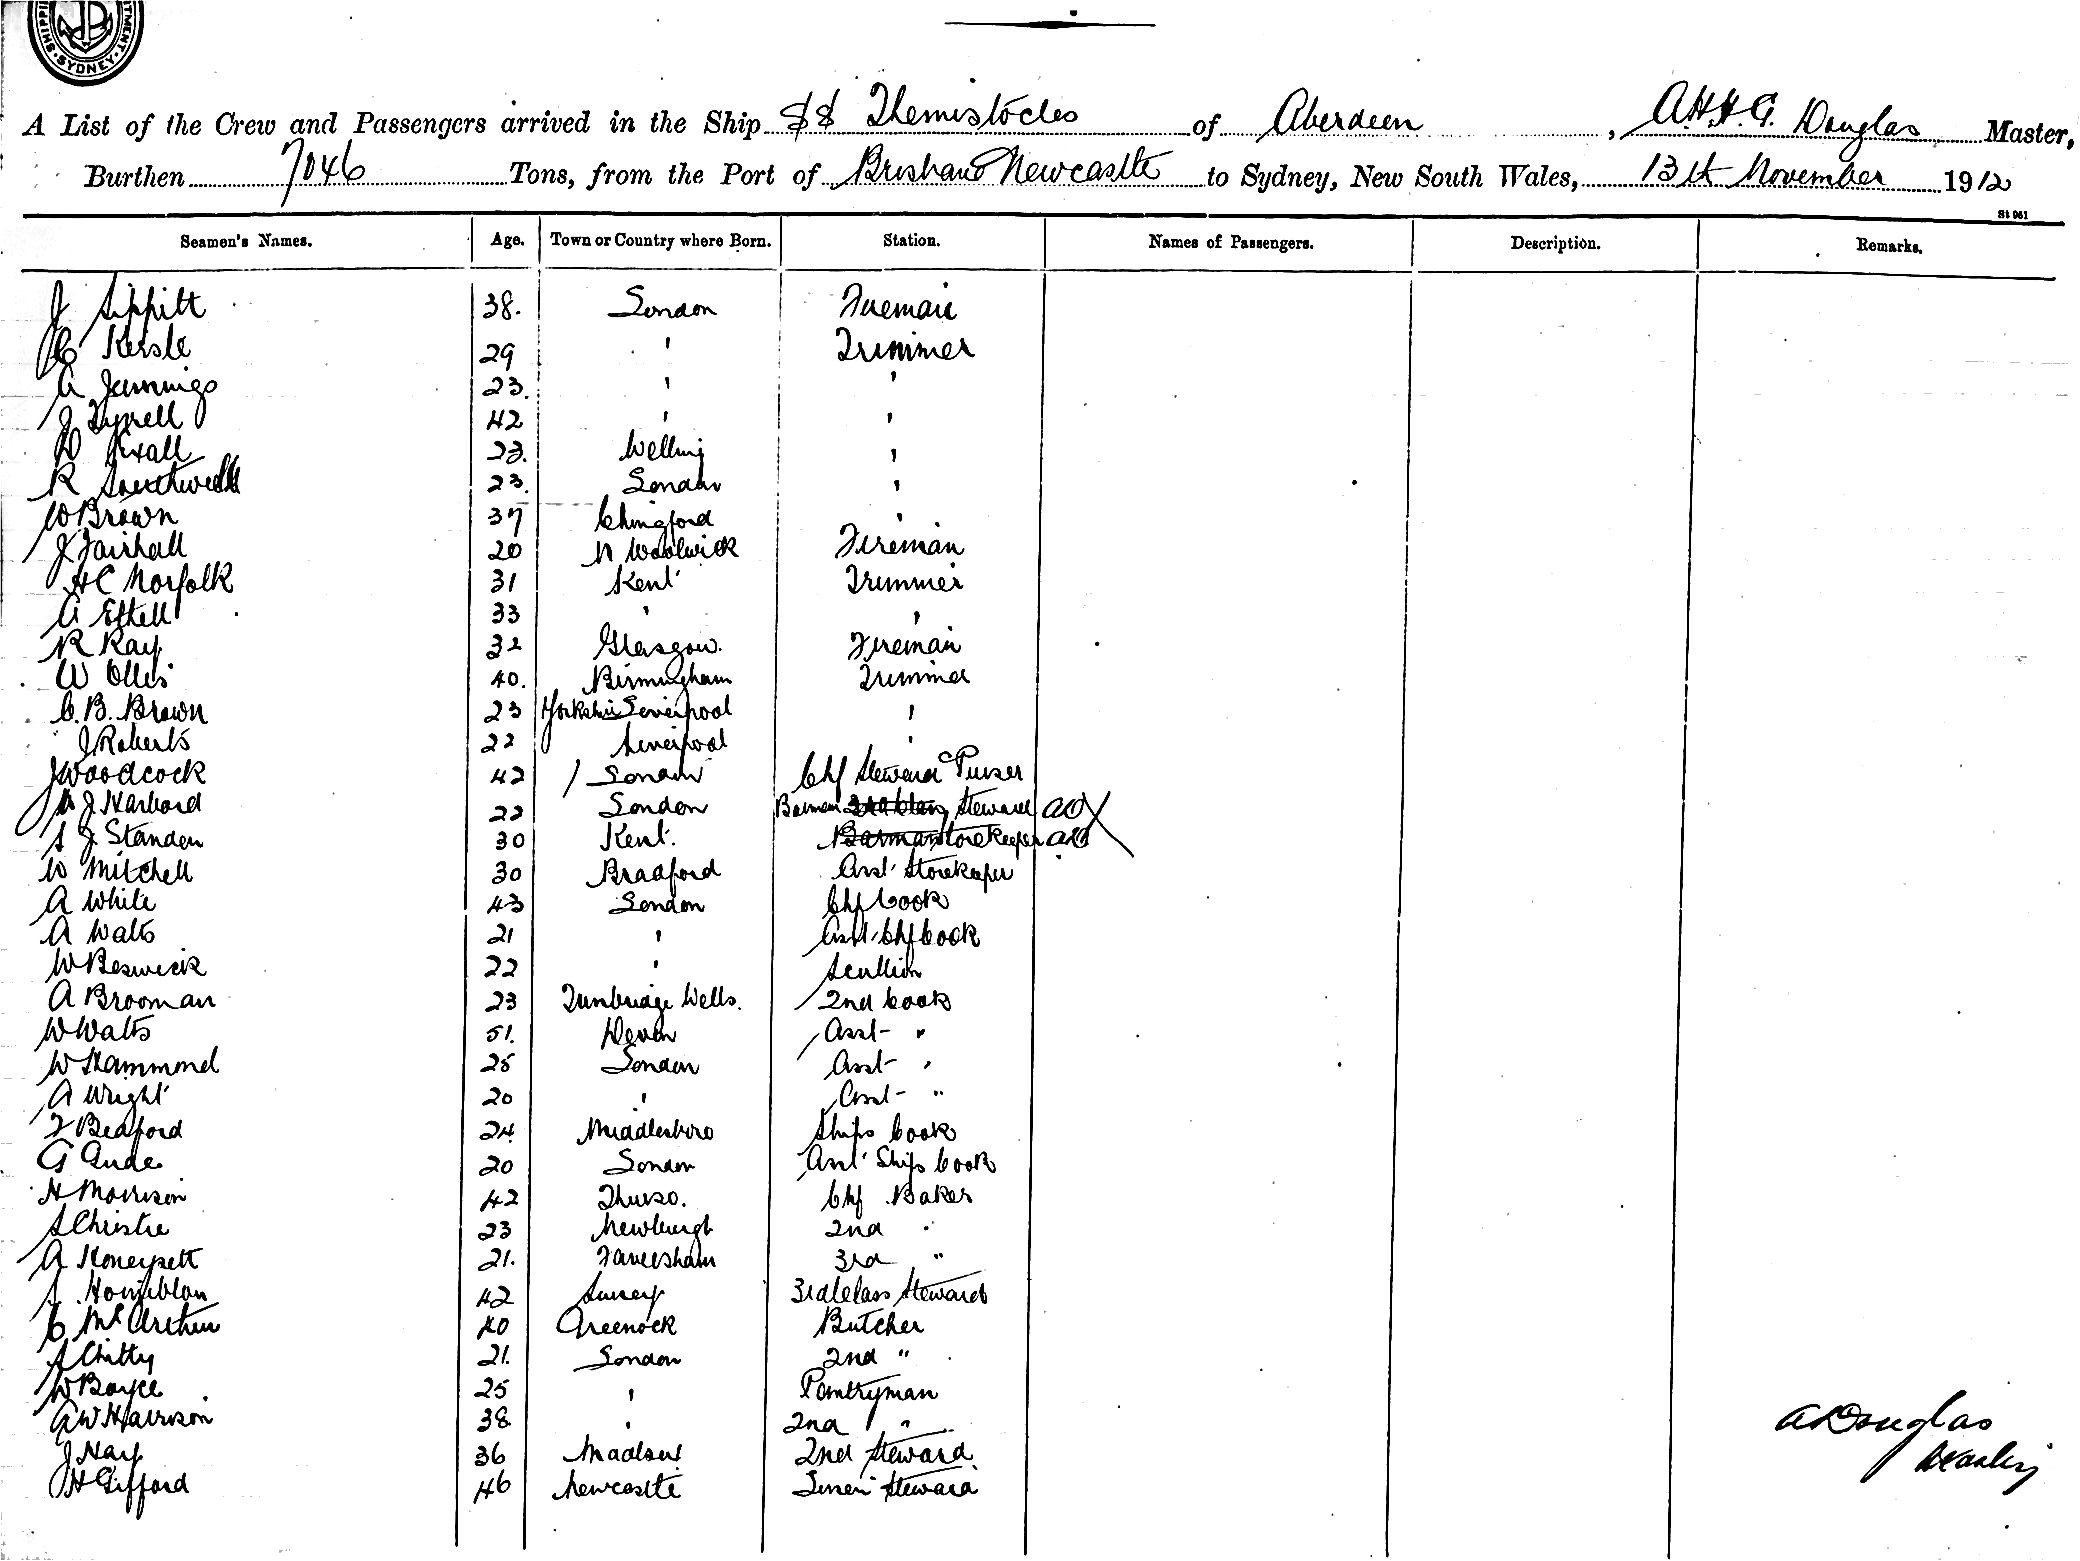 SYDNEY
A List of the Crew and Passengers arrived in the Ship SS Themistocles of Aberdeen, A.H.H.G. Douglas Master,
Burthen 7046 Tons, from the Port of Brisbane Newcastle to Sydney, New South Wales, 13th November 1912
St 961
Seamen's Names. Age. Town or Country where Born. Station. Names of Passengers. Description. Remarks.
J Sippitt 38. London Fireman
C Kersle 29 " Trimmer
A Jennings 23. " "
J Tyrrell 42 " "
Exall 23. Welling "
R Southwell 23. London "
W Brown 37 Chingford "
J Fairhall 20 N Woolwick Fireman
H C Norfolk 31 Kent Trimmer
A Ethell 33 " "
R Ray 32 Glasgow. Fireman
W Ollis 40. Birmingham Trimmer
C. B. Brown 23 Yorkshire Liverpool "
J Roberts 22 Liverpool "
J Woodcock 42 London Chf Steward Purser
J Harbord 22 London Barman Steward
S J Standen 30 Kent. Barman Storekeeper
W Mitchell 30 Bradford Asst Storekeeper
A White 43 London Chf Cook
A Watts 21 " Asst Chf Cook
W Beswick 22 " Scullion
A Brooman 23 Tunbridge Wells. 2nd Cook
W Watts 51. Devon Asst "
W Hammond 25 London Asst "
A Wright 20 " Asst "
F Bedford 24 Middlesbro Ships Cook
G Aude 20 London Asst Ships Cook
H Morrison 42 Thurso. Chf Baker
S Christie 23 Newburgh 2nd "
A Honeysett 21. Faversham 3rd "
S Hornblow 42 Surrey 3rd Class Steward
C McArthur 40 Greenock Butcher
A Chitty 21. London 2nd "
W Boyce 25 " Pantryman
A W Harrison 38 " 2nd "
J Hay 36 Madras 2nd Steward
A Douglas
H Gifford 46 Newcastle Linen Steward